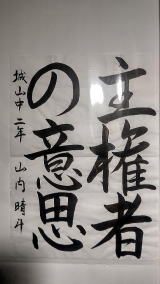 主権者
の意思
城山中 二年 山内 晴斗